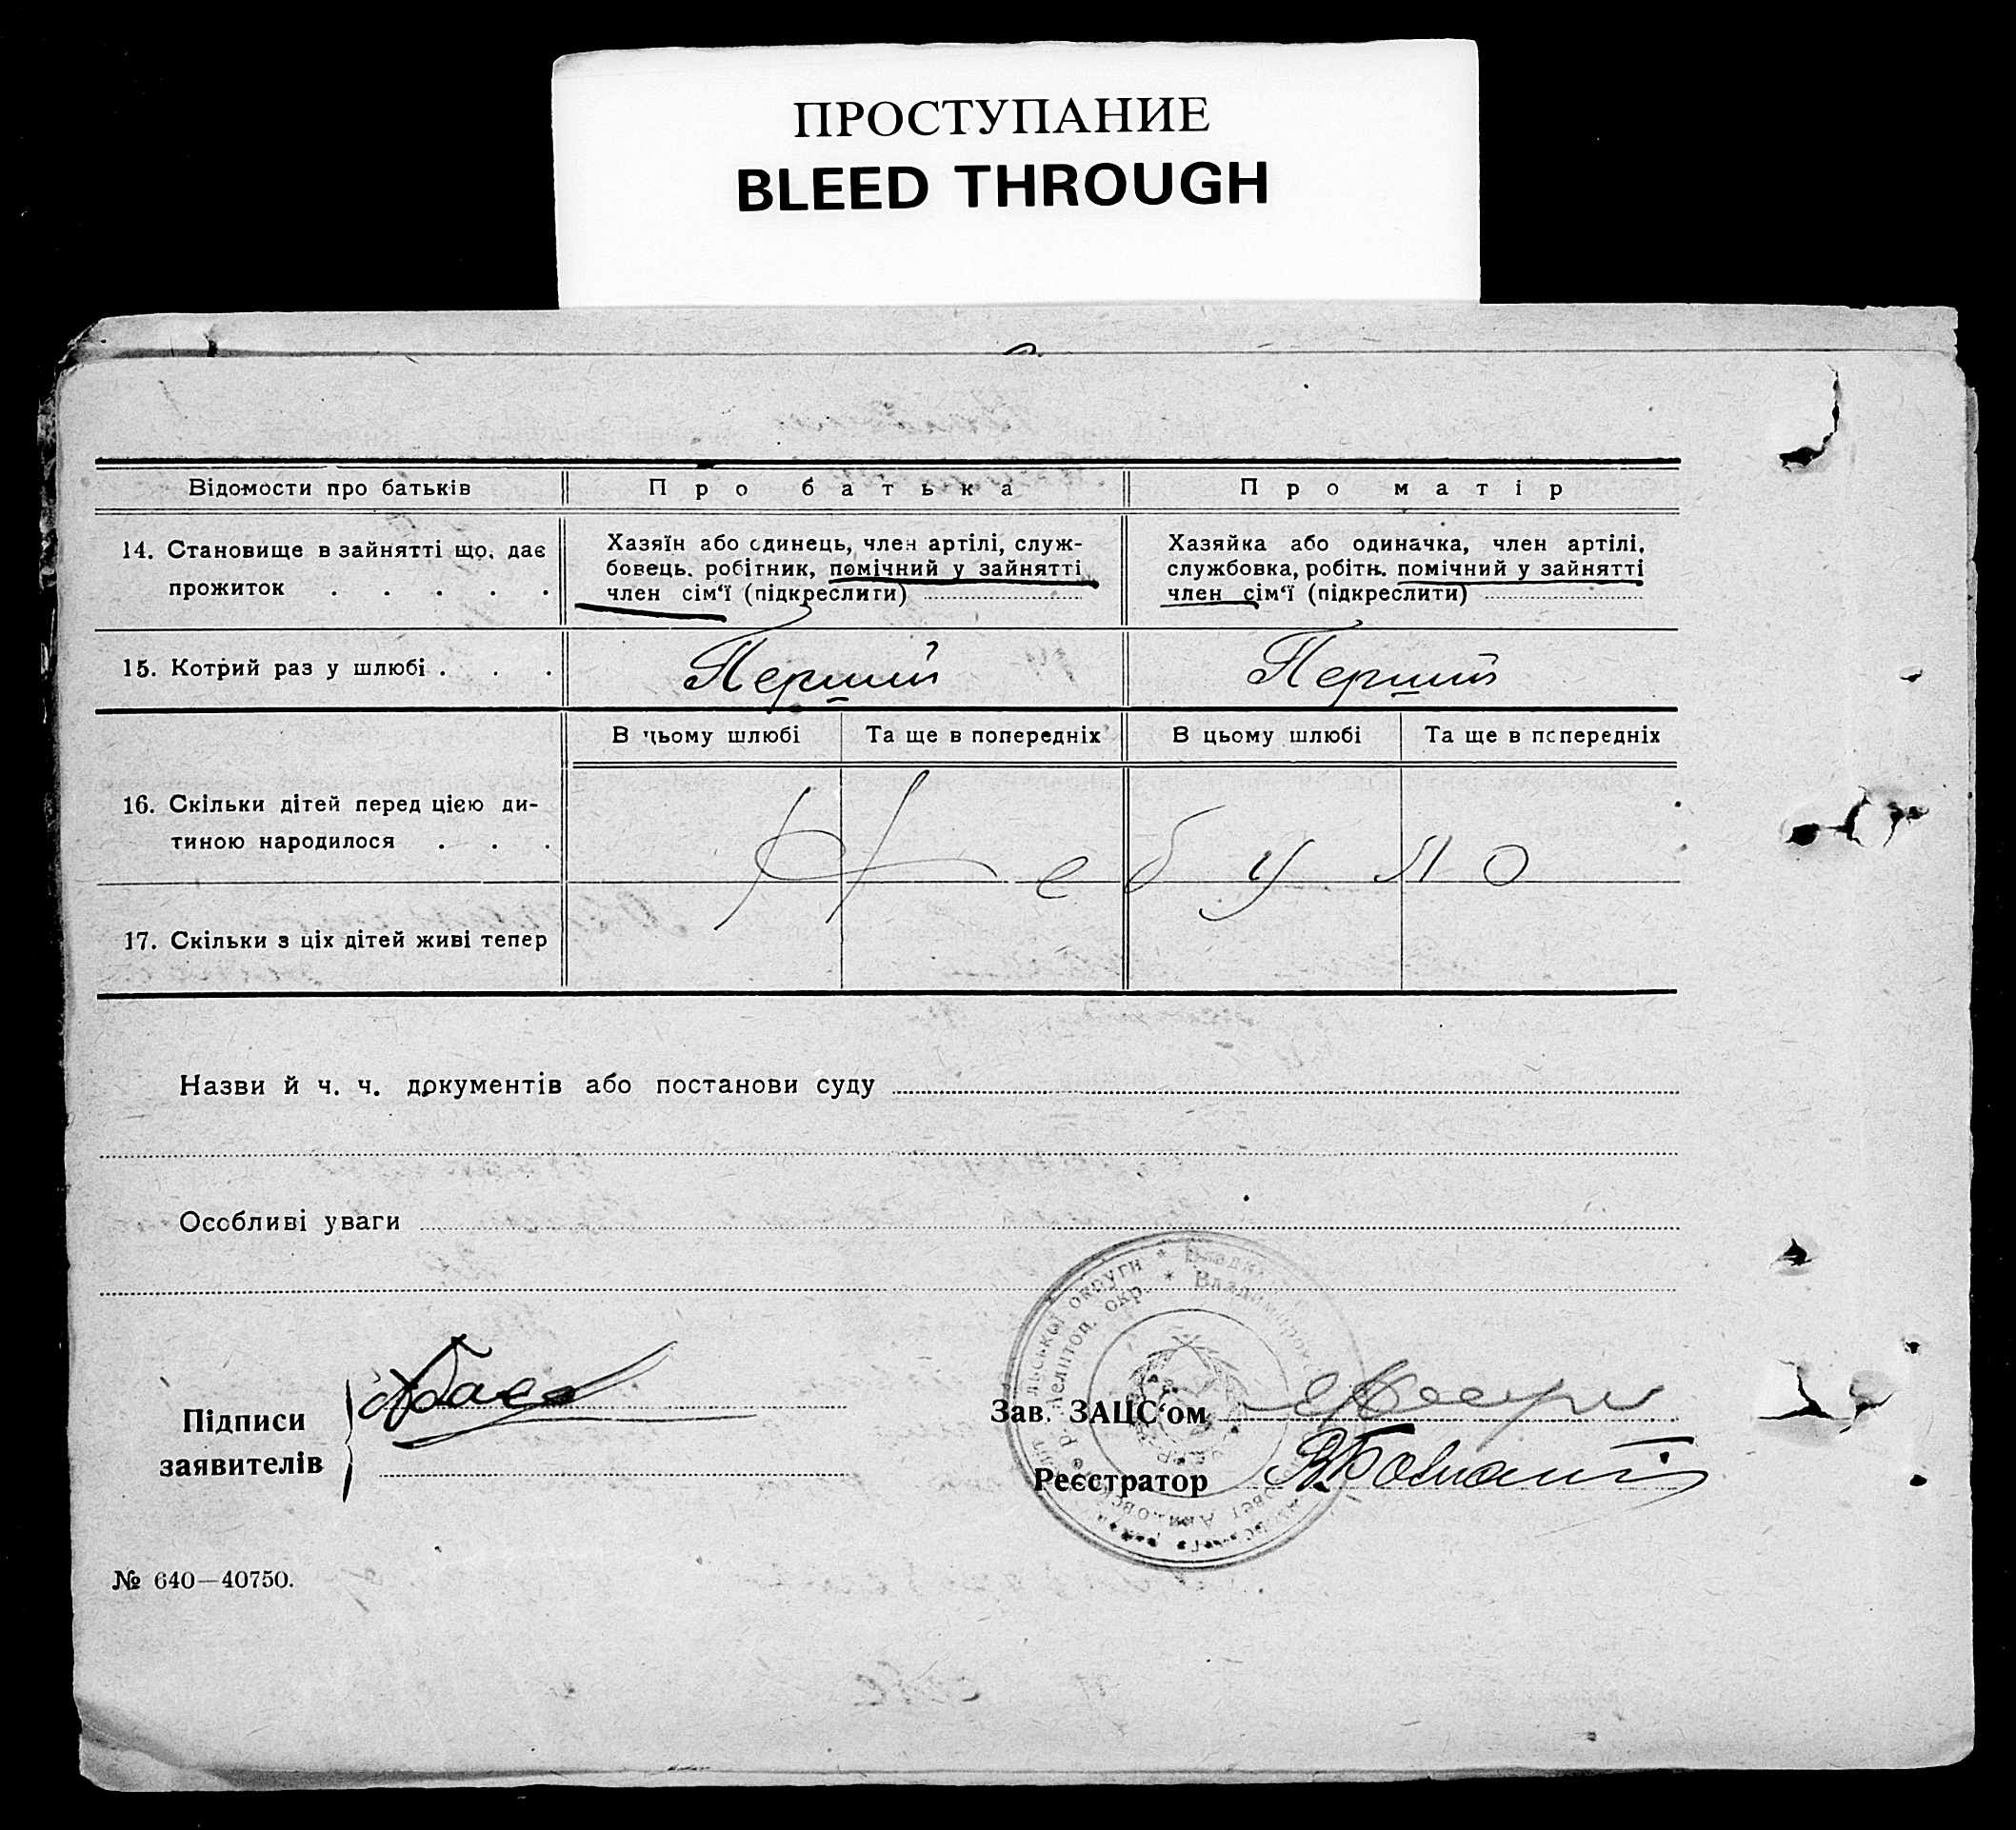 ПРОСТУПАНИЕ
BLEED THROUGH
Відомости про батьків
Про батька
Про матір
14. Становище в зайнятті що, дає
прожиток . . . . .
Хазяїн або одинець, член артілі, служ-
бовець. робітник, помічний у зайнятті
член сім‘ї (підкреслити)
Хазяйка або одиначка, член артілі,
службовка, робітн. помічний у зайнятті
член сім‘ї (підкреслити)
15. Котрий раз у шлюбі . . .
Перший
Перший
В цьому шлюбі
Та ще в попередніх
В цьому шлюбі
Та ще в попередніх
16. Скільки дітей перед цією ди-
тиною народилося . . .
Не було
17. Скільки з ціх дітей живі тепер
Назви й ч. ч. документів або постанови суду
Особливі уваги
Підписи
заявителів
Зав. ЗАЦС‘ом
Реєстратор
№ 640—40750.